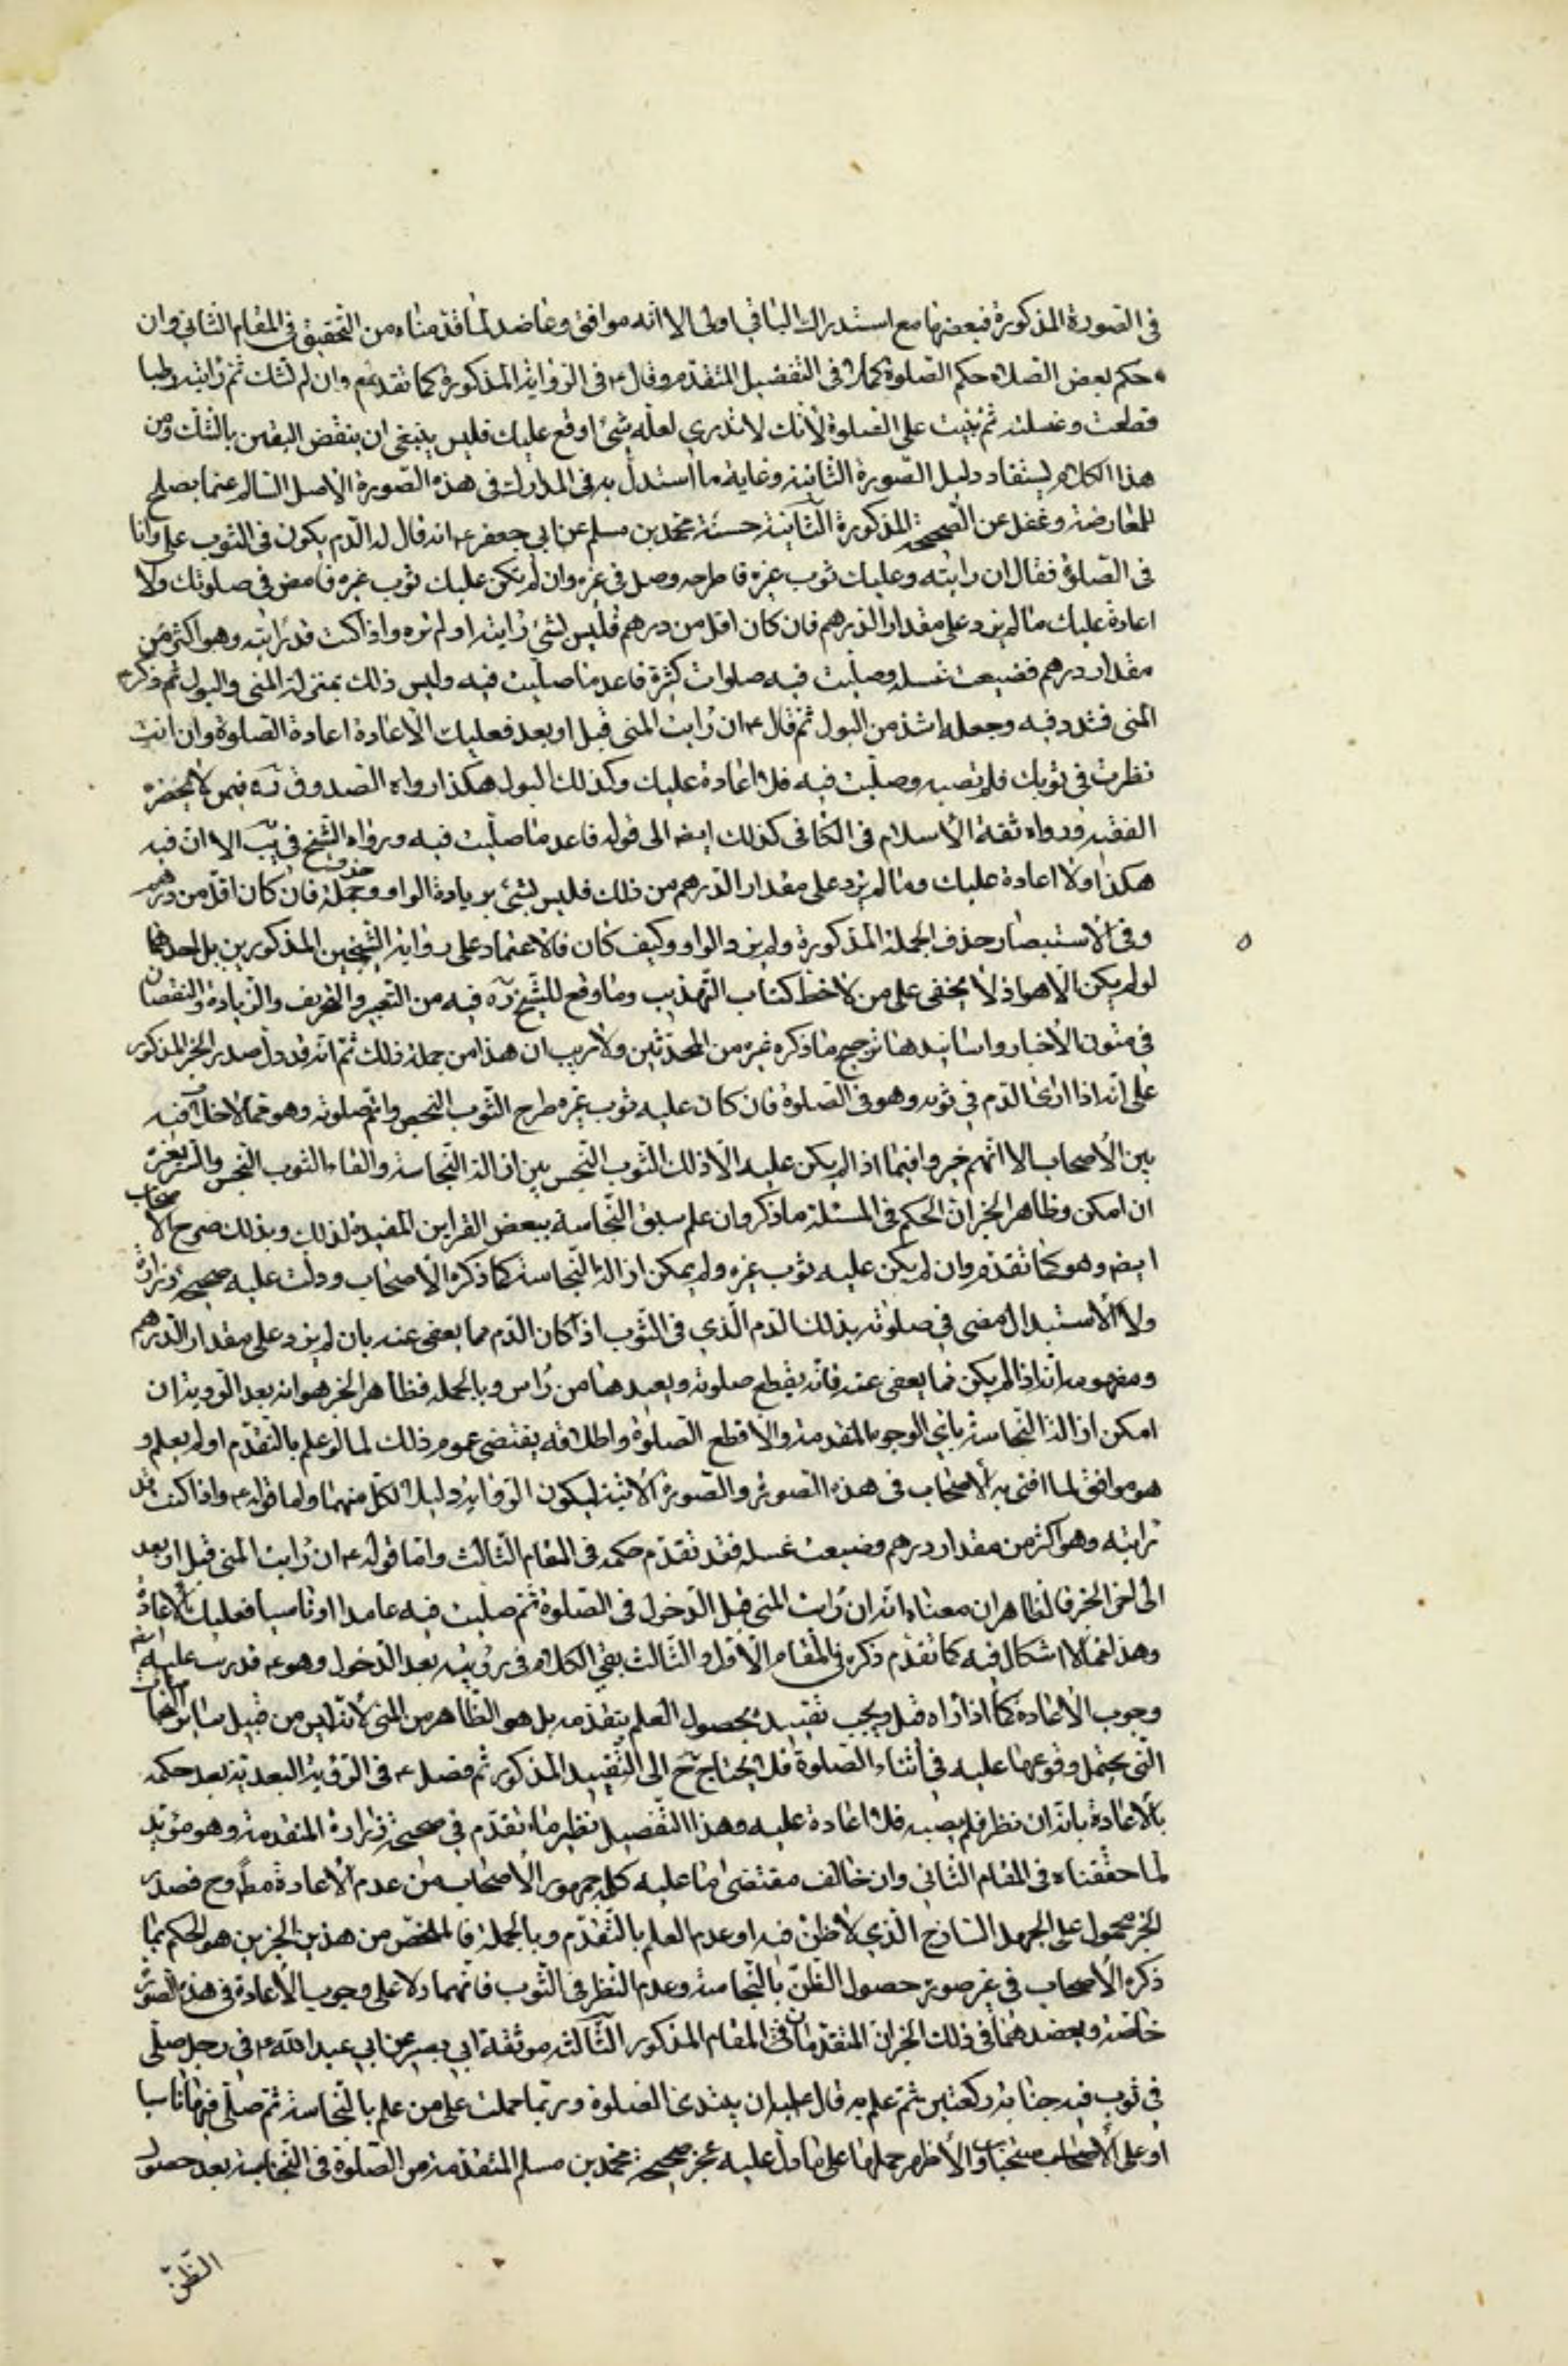 في الصورة المذكورة فبعضها مع استدراك الباقي اولى الا انه موافق وعاضد لما قدمناه من التحقيق في المقام الثاني وان
حكم بعض الصلاه حكم الصلوة كملا في التفصيل المتقدم وقال ع في الرواية المذكورة كما تقدم وان لم تشك ثم رايته رطبا
قطعت وغسلته ثم بنيت على الصلوة لانك لا تدري لعله شئ اوقع عليك فليس ينبغي ان ينقض اليقين بالشك ومن
هذا الكلام يستفاد دليل الصورة الثانية وغاية ما استدل به في المدارك في هذه الصورة الاصل السالم عما يصلح
للمعارضة وغفل عن الصحيحة المذكورة الثانية حسنة محمد بن مسلم عن ابي جعفر ع انه قال له الدم يكون في الثوب علي وانا
في الصلوة فقال ان رايته وعليك ثوب غيره فاطرحه وصل في غيره وان لم يكن عليك ثوب غيره فامض في صلوتك ولا
اعادة عليك ما لم يزد على مقدار الدرهم فان كان اقل من درهم فليس بشئ رايته او لم تره واذا كنت قد رايته وهو اكثر من
مقدار درهم فضيعت غسله وصليت فيه صلوات كثيرة فاعد ما صليت فيه وليس ذلك بمنزلة المنى والبول ثم ذكر ع
المنى فشدد فيه وجعله اشد من البول ثم قال ع ان رايت المنى قبل او بعد فعليك الاعادة اعادة الصلوة وان انت
نظرت في ثوبك فلم تصبه وصليت فيه فلا اعادة عليك وكذلك البول هكذا رواه الصدوق ره فيمن لا يحضره
الفقيه ورواه ثقة الاسلام في الكافي كذلك ايضا الى قوله فاعد ما صليت فيه ورواه الشيخ في يب الا ان فيه
هكذا ولا اعادة عليك وما لم يزد على مقدار الدرهم من ذلك فليس بشئ بزيادة الواو وحذف جملة فان كان اقل من درهم
وفي الاستبصار حذف الجملة المذكورة ولم يزد الواو وكيف كان فالاعتماد على رواية الشيخين المذكورين بل احدهما
لو لم يكن الا هو اذ لا يخفى على من لاحظ كتاب التهذيب وما وقع للشيخ ره فيه من التغيير والتحريف والزيادة والنقصان
في متون الاخبار واسانيدها ترجيح ما ذكره غيره من المحدثين ولا ريب ان هذا من جملة ذلك ثم انه قد دل صدر الخبر المذكور
على انه اذا ارى الدم في ثوبه وهو في الصلوة فان كان عليه ثوب غيره طرح الثوب النجس واتم صلوته وهو مما لا خلاف فيه
بين الاصحاب الا انهم خيروا فيما اذا لم يكن عليه الا ذلك الثوب النجس بين ازالة النجاسة والقاء الثوب النجس والستر بغيره
ان امكن وظاهر الخبر ان الحكم في المسئلة ما ذكر وان علم سبق النجاسة ببعض القراين المفيدة لذلك وبذلك صرح الاصحاب
ايضا وهو كما تقدم وان لم يكن عليه ثوب غيره ولم يمكن ازالة النجاسة كما ذكره الاصحاب ودلت عليه صحيحة زرارة
ولا الاستبدال مضى في صلوته بذلك الدم الذي في الثوب اذا كان الدم مما يعفى عنه بان لم يزد على مقدار الدرهم
ومفهومه انه اذا لم يكن مما يعفى عنه فانه يقطع صلوته ويعيدها من راس وبالجملة فظاهر الخبر هو انه بعد الروية ان
امكن ازالة النجاسة باي الوجوه المتقدمة والا قطع الصلوة واطلاقه يقتضي عموم ذلك لما لو علم بالتقدم او لم يعلم و
هو موافق لما افتى به الاصحاب في هذه الصورة والصورة الاتية ليكون الرواية دليلا لكل منهما واما قوله ع واذا كنت قد
رايته وهو اكثر من مقدار درهم وضيعت غسله فقد تقدم حكمه في المقام الثالث واما قوله ع ان رايت المنى قبل او بعد
الى اخر الخبر فالظاهر ان معناه انه ان رايت المنى قبل الدخول في الصلوة ثم صليت فيه عامدا او ناسيا فعليك الاعادة
وهذا مما لا اشكال فيه كما تقدم ذكره في المقام الاول والثالث بقي الكلام في رويته بعد الدخول وهو ع قد رتب عليه ايضا
وجوب الاعادة كما اذا راه قبل ويجب تقييده بحصول العلم بتقدمه بل هو الظاهر من المنى لانه ليس من قبيل ساير النجاسات
التي يحتمل وقوعها عليه في اثناء الصلوة فلا يحتاج ح الى التقييد المذكور ثم فصل ع في الرؤية البعدية بعد حكمه
بالاعادة بانه ان نظر فلم يصبه فلا اعادة عليه وهذا التفصيل نظير ما تقدم في صحيحة زرارة المتقدمة وهو مؤيد
لما حققناه في المقام الثاني وان خالف مقتضى ما عليه كلام جمهور الاصحاب من عدم الاعادة مط وح فصدر
الخبر محمول على الجهل الساذج الذي لا ظن فيه او عدم العلم بالتقدم وبالجملة فالملخص من هذين الخبرين هو الحكم بما
ذكره الاصحاب في غير صورة حصول الظن بالنجاسة وعدم النظر في الثوب فانهما دلا على وجوب الاعادة في هذه الصورة
خاصة ويعضدهما في ذلك الخبران المتقدمان في المقام المذكور الثالثة موثقة ابي بصير عن ابي عبد الله ع في رجل صلى
في ثوب فيه جنابة ركعتين ثم علم به قال عليه ان يبتدئ الصلوة وربما حملت على من علم بالنجاسة ثم صلى فيها ناسيا
او على الاستحباب والاظهر حملها على ما دل عليه عجز صحيحة محمد بن مسلم المتقدمة من الصلوة في النجاسة بعد حصول
الظن